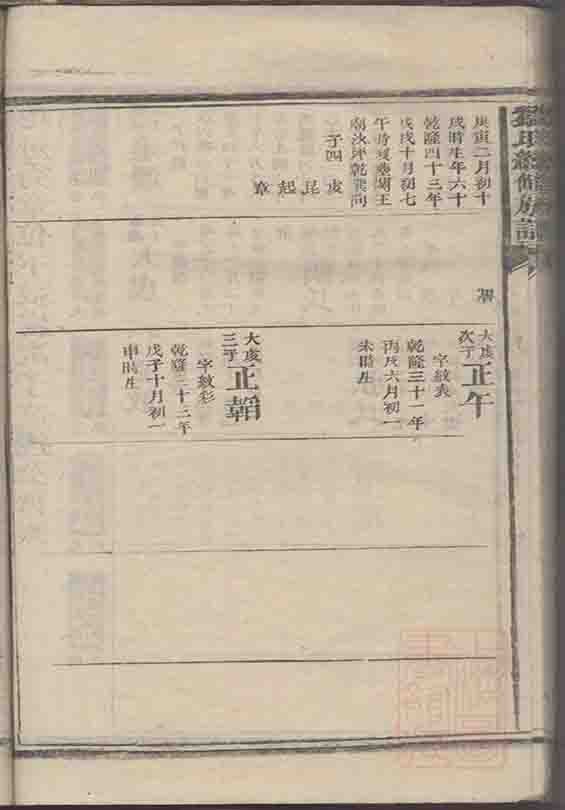 庚寅二月初十
戌時生年六十
乾隆四十三年
戊戌十月初七
午時歿葬關王
廟汝坪乾巽向
子四
虔
昆
起
章
大虔次子
正午
字紋表
乾隆三十一年
丙戌六月初一
未時生
大虔三子
正韜
字紋彩
乾隆三十三年
戊子十月初一
申時生
氏續修族譜